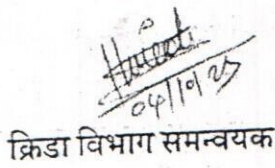 04/10/25
क्रिडा विभाग समन्वयक